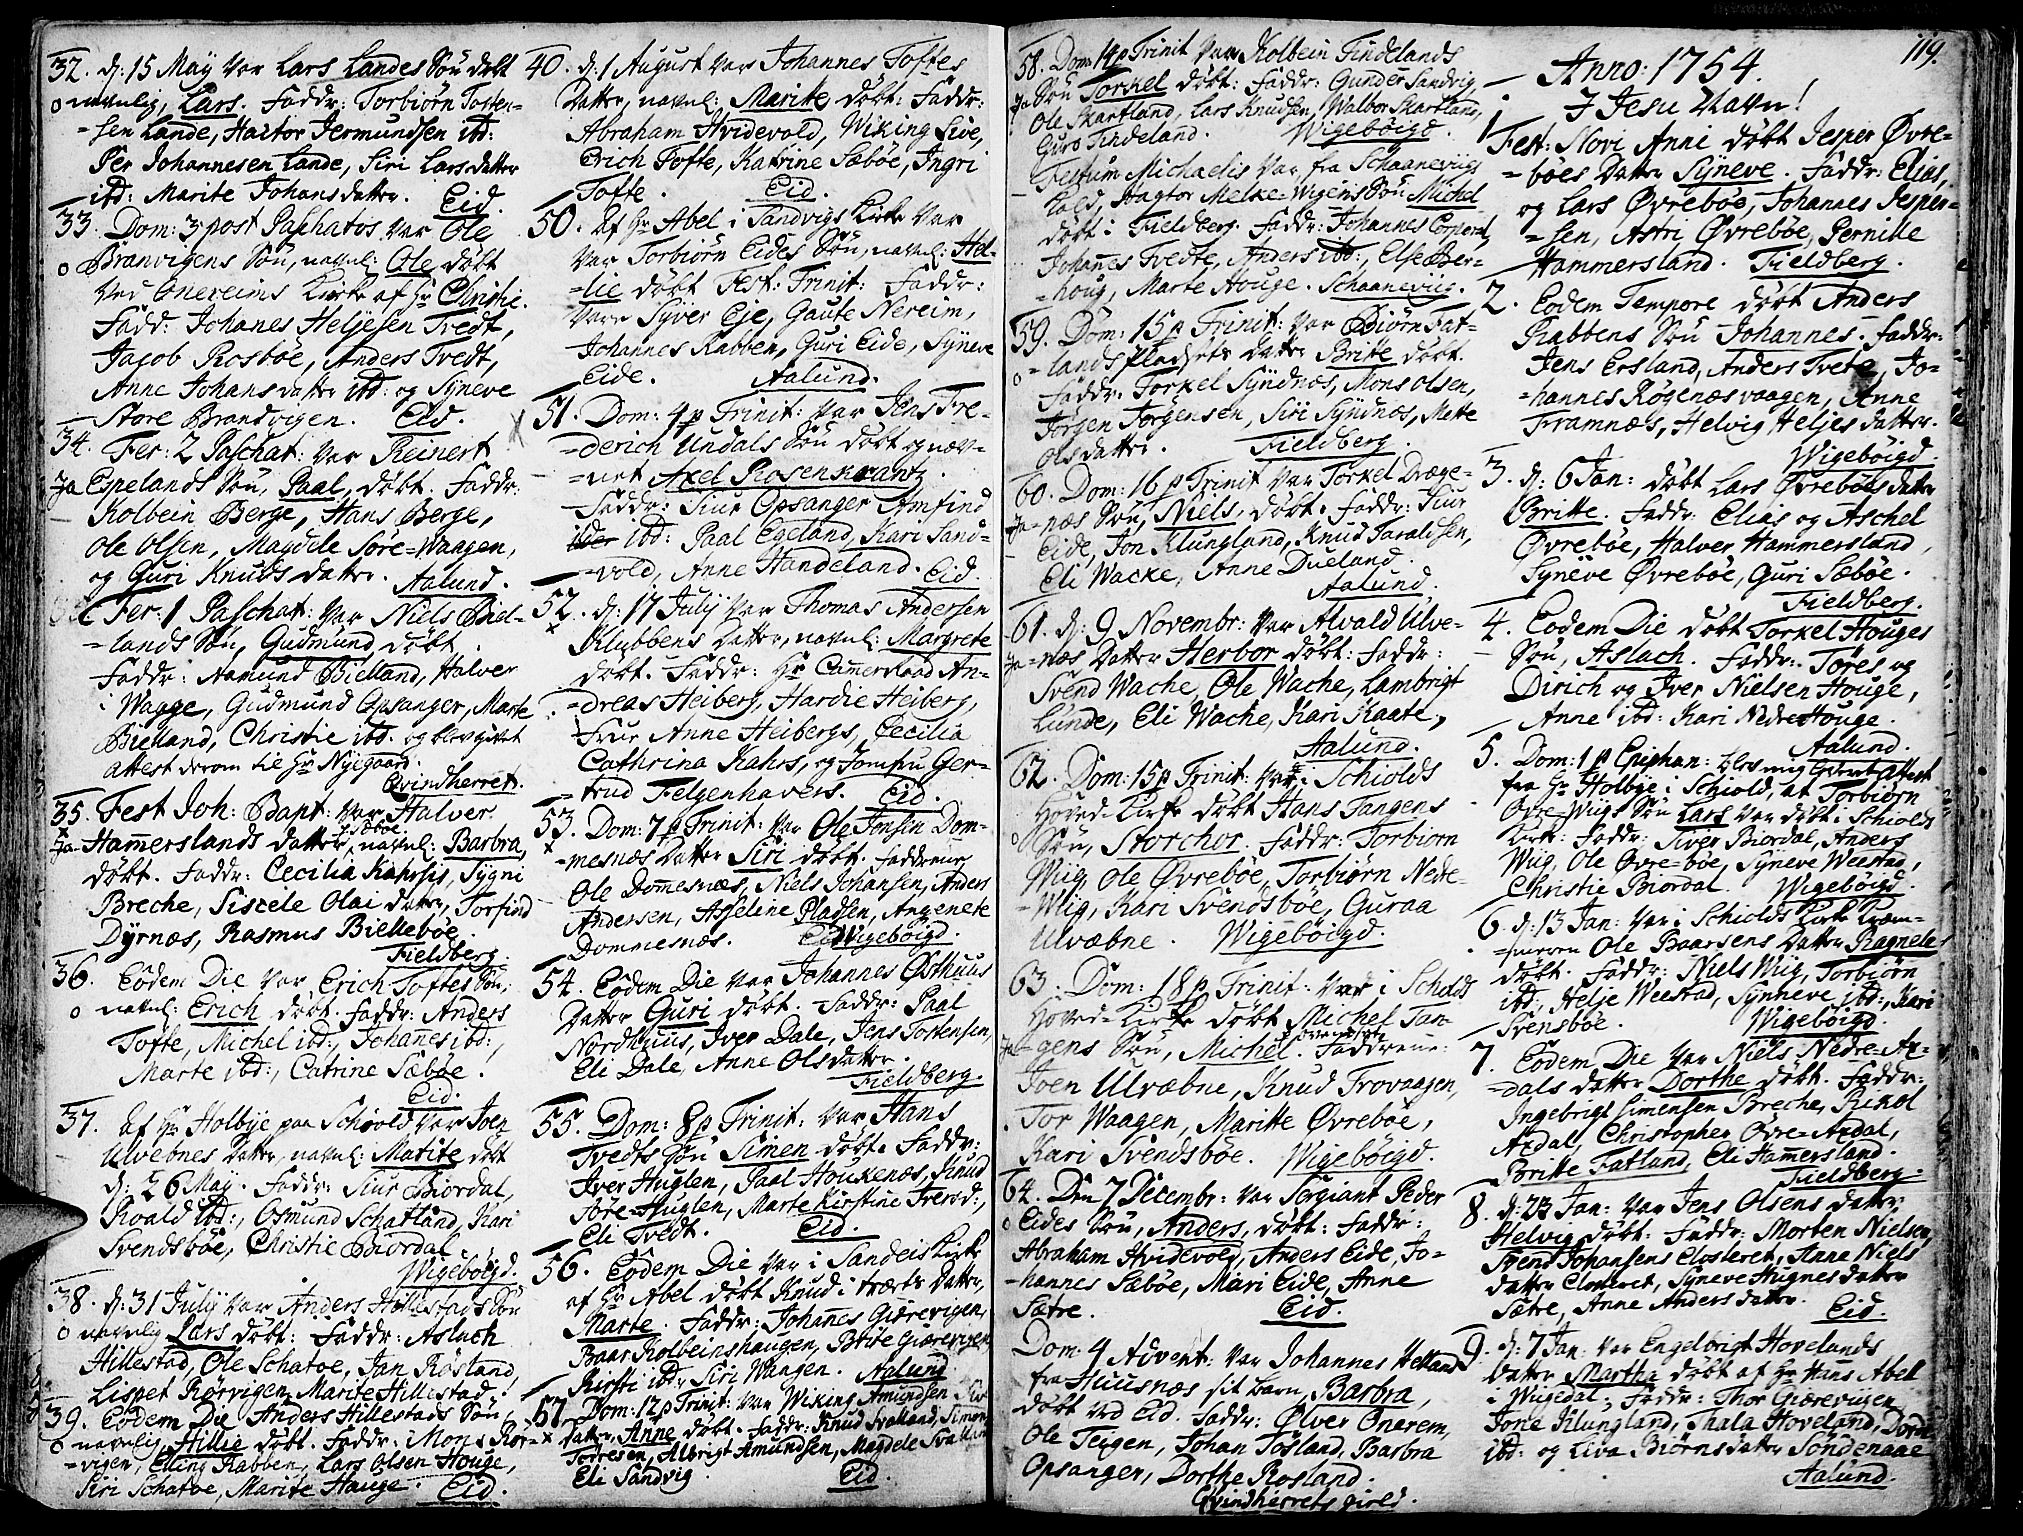 32. d: 15 May var Lars Landes Søn døbt
navnlig, Lars. Faddr: Torbiørn Tosten-
=sen Lande, Haltor Jermundsen ibd:
Per Johannesen Lande, Siri Larsdatter
ibd: Marite Johansdatter. Eid.
33. Dom: 3 post Paschatos var Ole
Branvigens Søn, navnl: Ole døbt
ved Onereims Kirke af Hr Christie.
Fadd: Johanes Heljesen Tvedt,
Jacob Rosbøe, Anders Tvedt,
Anne Johansdatter ibd: og Syneve
Store Brandvigen. Eid.
34. Fer: 2 Paschat: var Reinert
Ja Espelands Søn, Paal, døbt. Faddr:
Kolbein Berge, Hans Berge,
Ole Olsen, Magdele Søre=Waagen,
og Guri Knuds datter. Aalund.
Fer: 1 Paschat: var Niels Biel-
=lands Søn, Gudmund, døbt.
Faddr: Aamund Bielland, Halver
Wagge, Gudmund Opsanger, Marte
Bielland, Christie ibd. og blev givet
attest derom til Hr Nyegaard.
Qvindherret.
35. Fest Joh: Bapt: var Halver
Ja Hammerslands datter, navnl: Barbra,
døbt. Faddr: Cecilia Kahrsis, Sygni
Breche, Siscele Olai datter, Torfind
Dyrnæs, Rasmus Biellebøe.
Fieldberg.
36. Eodem Die var Erich Toftes Søn,
navnl: Erich døbt. Faddr: Anders
Tofte, Michel ibd:, Johanes ibd:,
Marte ibd:, Catrine Sæbøe.
Eid.
37. Af Hr Holbye paa Schiold var Joen
Ulvebnes datter, navnl: Marite døbt
d: 26 May. Faddr: Siur Biordal,
Roald ibd:, Osmund Schatland, Kari
Svendsbøe, Christie Biordal.
Wigebøigd.
38. d: 31 July var Anders Hillestads Søn
navnlig Lars døbt: Faddr: Aslach
Hillestad, Ole Schatoe, Jan Røsland,
Lispet Rørvigen, Marite Hillestad.
39. Eodem Die Anders Hillestads Søn,
navnlig, Hillie døbt. Faddr: Mons Rør-
=vigen, Elling Rabben, Lars Olsen Houge,
Siri Schatoe, Marite Houge. Eid.
40. d: 1 August var Johannes Toftes
Datter, navnl: Marite døbt: Faddr:
Abraham Hvidevold, Wiking Live,
Erich Tofte, Katrine Sæbøe, Ingri
Tofte. Eid.
50. Af Hr Abel i Sandvigs Kirke var
var Torbiørn Eides Søn, navnl: Hel-
=lie døbt Fest: Trinit: Faddr:
vare Syver Eje, Gaute Nereim,
Johannes Rabben, Guri Eide, Syneve
Eide. Aalund.
51. Dom: 4 p Trinit: var Jens Fre-
=derich Undals Søn døbt og næv-
=net Axel Rosenkrantz.
Faddr: Siur Opsanger Amfind
ibd: Paal Egeland, Kari Sand-
=vold, Anne Handeland. Eid.
52. d: 17 July var Thomas Andersen
Klubbens Datter, navnl: Margrete
døbt. Faddr: Hr Camerraad An-
=dreas Heiberg, Hardie Heiberg,
Frue Anne Heibergs, Cecilia
Cathrina Kahrs, og Jomfru Ger-
=trud Felgenhavers. Eid.
53. Dom: 7 p Trinit: var Ole Jonsen Dom-
=mesnæs Datter Siri døbt. Faddrene
Ole Domesnæs, Niels Johansen, Anders
Andersen, Asseline Pladsen, Angenete
Dommesnæs. Wigebøigd.
54. Eodem Die var Johannes Østhuus
Datter Guri døbt. Faddr: Paal
Nordhuus, Iver Dale, Jens Tostensen,
Eli Dale, Anne Olsdatter.
Fieldberg.
55. Dom: 8 p Trinit: var Hans
Tvedts Søn Simen døbt. Faddr:
Iver Huglen, Paal Houkenæs, Knud
Søre=Huglen, Marte Kirstine Iversd:,
Eli Tvedt. Eid.
56. Eodem Die var i Sandeis Kirke
af Hr Abel døbt Knud i Træets Datter,
Marte. Faddr: Johanes Giærevigen,
Baar Kolbeinshaugen, Birte Giærevigen,
Kirsti ibd: Siri Wansen. Aalund.
57. Dom: 12 p Trinit: var Wiking Amundsen
datter Anne døbt. Faddr: Knud Svalland, Simon
Torresen, Albrigt Amundsen, Magdele Svalland
Eli Sandvig. Eid.
58. Dom: 14 p Trinit var Kolbein Tindelands
Ja Søn Torkel døbt: Faddr: Gunder Sandvig,
Ole Skartland, Lars Knudsen, Walbor Skartland,
Guro Tindeland. Wigebøigd.
Festum Michaelis var fra Schaaneviigs
Hagtor Melke=Wigens Søn Michel
døbt i Fieldberg. Faddr: Johannes Corporal,
Johanes Tvedte, Anders ibd:, Else Ber-
=houg, Marte Houge. Schaaneviig.
59. Dom: 15 p Trinit: var Biørn Fat-
=lands pladsets datter Britte døbt.
Faddr: Torkel Syndnæs, Mons Olsen,
Jørgen Jørgensen, Siri Syndnæs, Mette
Olsdatter. Fieldberg.
60. Dom: 16 p Trinit var Torkel Drage-
Ja =næs Søn, Niels, døbt. Faddr: Siur
Eide, Jon Klungland, Knud Taraldsen,
Eli Wacke, Anne Dueland.
Aalund.
61. d: 9 Novembr: var Alvald Ulve-
Ja =næs Datter Herbor døbt: Faddr:
Svend Wache, Ole Wache, Lambrigt
Lunde, Eli Wache, Kari Kaate,
Aalund.
62. Dom: 15 p Trinit: var i Schiolds
Hoved=Kirke døbt Hans Tangens
Søn, Storchor. Faddr: Torbiorn
Wiig, Ole Øvrebøe, Torbiørn Nedre-
=Wiig, Kari Svendsbøe, Guraa
Ulvæbne. Wigebøigd.
63. Dom: 18 p Trinit: var i Scholds
Hoved=Kirke døbt Michel Tan-
Ja =gens Søn, Michel. Faddrene:
Joen Ulvæbne, Knud Trovaagen,
Tor Waagen, Maritte Øvrebøe,
Kari Svendsbøe. Wigebøigd.
64. Den 7 Decembr: var Sergiant Peder
Eides Søn, Anders, døbt: Faddr:
Abraham Hvidevold, Anders Eide, Jo-
=hannes Sæbøe, Mari Eide, Anne
Sætre. Eid.
Dom: 4 Advent: var Johannes Helland
fra Huusnæs sit barn, Barbra,
døbt ved Eid. Faddr: Ølver Onarem,
Ole Teigen, Johan Tøsland, Barbra
Opsanger, Dorthe Rosland.
Qvindherrets Giæld.
119.
Anno: 1754.
I Jesu Navn!
1. Fest: Novi Anni døbt Jesper Øvre-
=bøes Datter Syneve. Faddr: Elias,
og Lars Øvrebøe, Johannes Jesper-
=sen, Astri Øvrebøe, Pernille
Hammersland. Fieldberg.
2. Eodem Tempore døbt Anders
Rabbens Søn Johannes. Faddr:
Jens Ersland, Anders Tvete, Jo-
=hannes Røgenæsvaagen, Anne
Framnæs, Helvig Heljes datter.
Wigebøigd.
3. d: 6 Jan: døbt Lars Øvrebøes datter
Britte. Faddr: Elias og Aschel
Øvrebøe, Halver Hammersland,
Syneve Øvrebøe, Guri Sæbøe.
Fieldberg.
4. Eodem Die døbt Torkel Houges
Søn, Aslach. Faddr: Tøres og
Dirich og Iver Nielsen Houge,
Anne ibd: Kari Nedre Houge.
Aalund.
5. Dom: 1 p Epiphan: blev mig Attest
fra Hr Holbye i Schiold, at Torbiørn
Øvre=Wiigs Søn Lars var døbt i Schiolds
Kirke: Faddr: Siver Biordal, Anders
Wiig, Ole Øvre=bøe, Syneve Weestad,
Christie Biordal. Wigebøigd.
6. d: 13 Jan: var i Schiolds Kirke
Ole Baarsens Datter Ragnele
døbt. Faddr: Niels Wiig, Torbiørn
ibd:, Helje Weestad, Synneve ibd:, Kari
Svensbøe. Wigebøigd.
7. Eodem Die var Niels Nedre=Ax-
=dals datter Dorthe døbt. Faddr:
Ingebrigt Simensen Breche, Rikol
Axdal, Christopher Øvre=Axdal,
Britte Fatland, Eli Hamersland.
Fieldberg.
8. d: 23 Jan: var Jens Olsens datter,
Helvig døbt. Faddr: Morten Nielsen,
Svend Johansens Closteret, Anne Niels
datter Closteret, Syneve Hugnes datter
Sætre, Anne Anders datter. Eid.
9. d: 7 Jan: var Engelbrigt Hovelands
datter Martha døbt af Hr Hans Abel
i Wigedal; Faddr: Thor Giærevigen
Jorre Klungland, Thala Hoveland,
ibd: og Liva Biørnsdatter Søndenaae
Aalund.